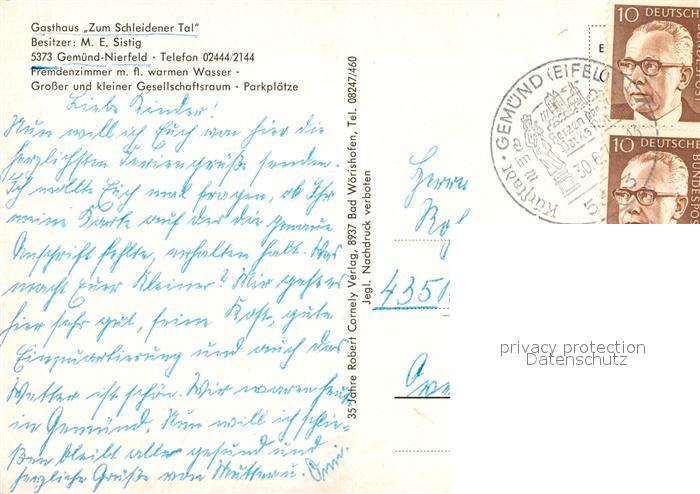 Gasthaus „Zum Schleidener Tal"
Besitzer: M. E. Sistig
5373 Gemünd-Nierfeld · Telefon 02444/2144
Fremdenzimmer m. fl. warmen Wasser ·
Großer und kleiner Gesellschaftsraum · Parkplätze
Liebe Kinder!
Nun will ich Euch von hier die
herzlichsten Feriengrüße senden.
Ich wollte Euch mal fragen, ob Ihr
meine Karte auf der die genaue
Anschrift fehlte, erhalten habt. Was
macht Euer Kleiner? Mir geht es
hier sehr gut, feine Kost, gute
Einquartierung und auch das
Wetter ist schön. Wir waren heut
in Gemünd. Nun will ich schlie-
ßen bleibt alle gesund und
herzliche Grüße von Mutter u.
35 Jahre Robert Cornely Verlag, 8937 Bad Wörishofen, Tel. 08247/460
Jegl. Nachdruck verboten
GEMÜND (EIFEL)
Kurstadt
30.6.
10 DEUTSCHE BUNDESPOST
10 DEUTSCHE BUNDESPOST
Herrn
4351
privacy protection
Datenschutz